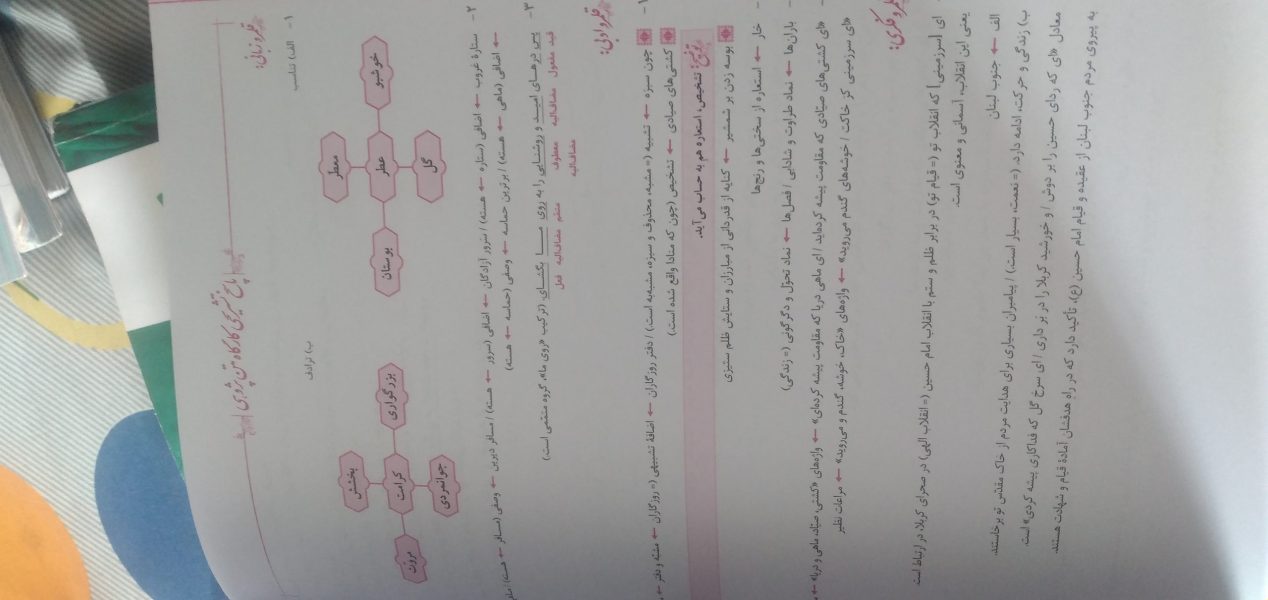 پاسخ تشریحی کارگاه متن پژوهی
قلمرو زبانی:
۱- الف) تناسب
ب) ترادف
خوشبو
معطر
عطر
گل
بوستان
بزرگواری
بخشش
کرامت
جوانمردی
مروّت
۲- ستارهٔ غروب ← اضافی (ستاره ← هسته) / سرور آزادگان ← اضافی (سرور ← هسته) / مسافر دیرین ← وصفی (مسافر ← هسته) /
← اضافی (ماهی ← هسته) / برترین حماسه ← وصفی (حماسه ← هسته)
۳- پس درهای امید و روشنایی را به روی ما بگشای. (ترکیب «روی ما»، گروه متممی است)
قید مفعول مضاف‌الیه معطوف متمم مضاف‌الیه فعل
مضاف‌الیه
قلمرو ادبی:
۱- چون سبزه ← تشبیه (= مشبه، محذوف و سبزه، مشبه‌به است.) / دفتر روزگاران ← اضافهٔ تشبیهی (= روزگاران ← مشبه و دفتر ←
کشتی‌های صیادی ← تشخیص (چون که منادا واقع شده است.)
توضیح: تشخیص، استعاره هم به حساب می‌آید.
بوسه زدن بر شمشیر ← کنایه از قدردانی از مبارزان و ستایش ظلم ستیزی
- خار ← استعاره از سختی‌ها و رنج‌ها
- باران‌ها ← نماد طراوت و شادابی / فصل‌ها ← نماد تحوّل و دگرگونی (= زندگی)
- «ای کشتی‌های صیادی که مقاومت پیشه کرده‌اید / ای ماهی دریا که مقاومت پیشه کرده‌ای» ← واژه‌های «کشتی، صیاد، ماهی و دریا» ←
«ای سرزمینی کز خاکت / خوشه‌های گندم می‌روید» ← واژه‌های «خاک، خوشه، گندم و می‌روید» ← مراعات نظیر
قلمرو فکری:
ای [سرزمینی] که انقلاب تو (= قیام تو) در برابر ظلم و ستم با انقلاب امام حسین (= انقلاب الهی) در صحرای کربلا، در ارتباط است
یعنی این انقلاب، آسمانی و معنوی است.
الف ← جنوب لبنان
ب) زندگی و حرکت، ادامه دارد. (= نعمت، بسیار است.) / پیامبران بسیاری برای هدایت مردم از خاک مقدّس تو برخاستند.
معادل «ای که ردای حسین را بر دوش / و خورشید کربلا را در بر داری / ای سرخ گل که فداکاری پیشه کردی» است.
به پیروی مردم جنوب لبنان از عقیده و قیام امام حسین (ع)، تأکید دارد که در راه هدفشان آمادهٔ قیام و شهادت هستند.